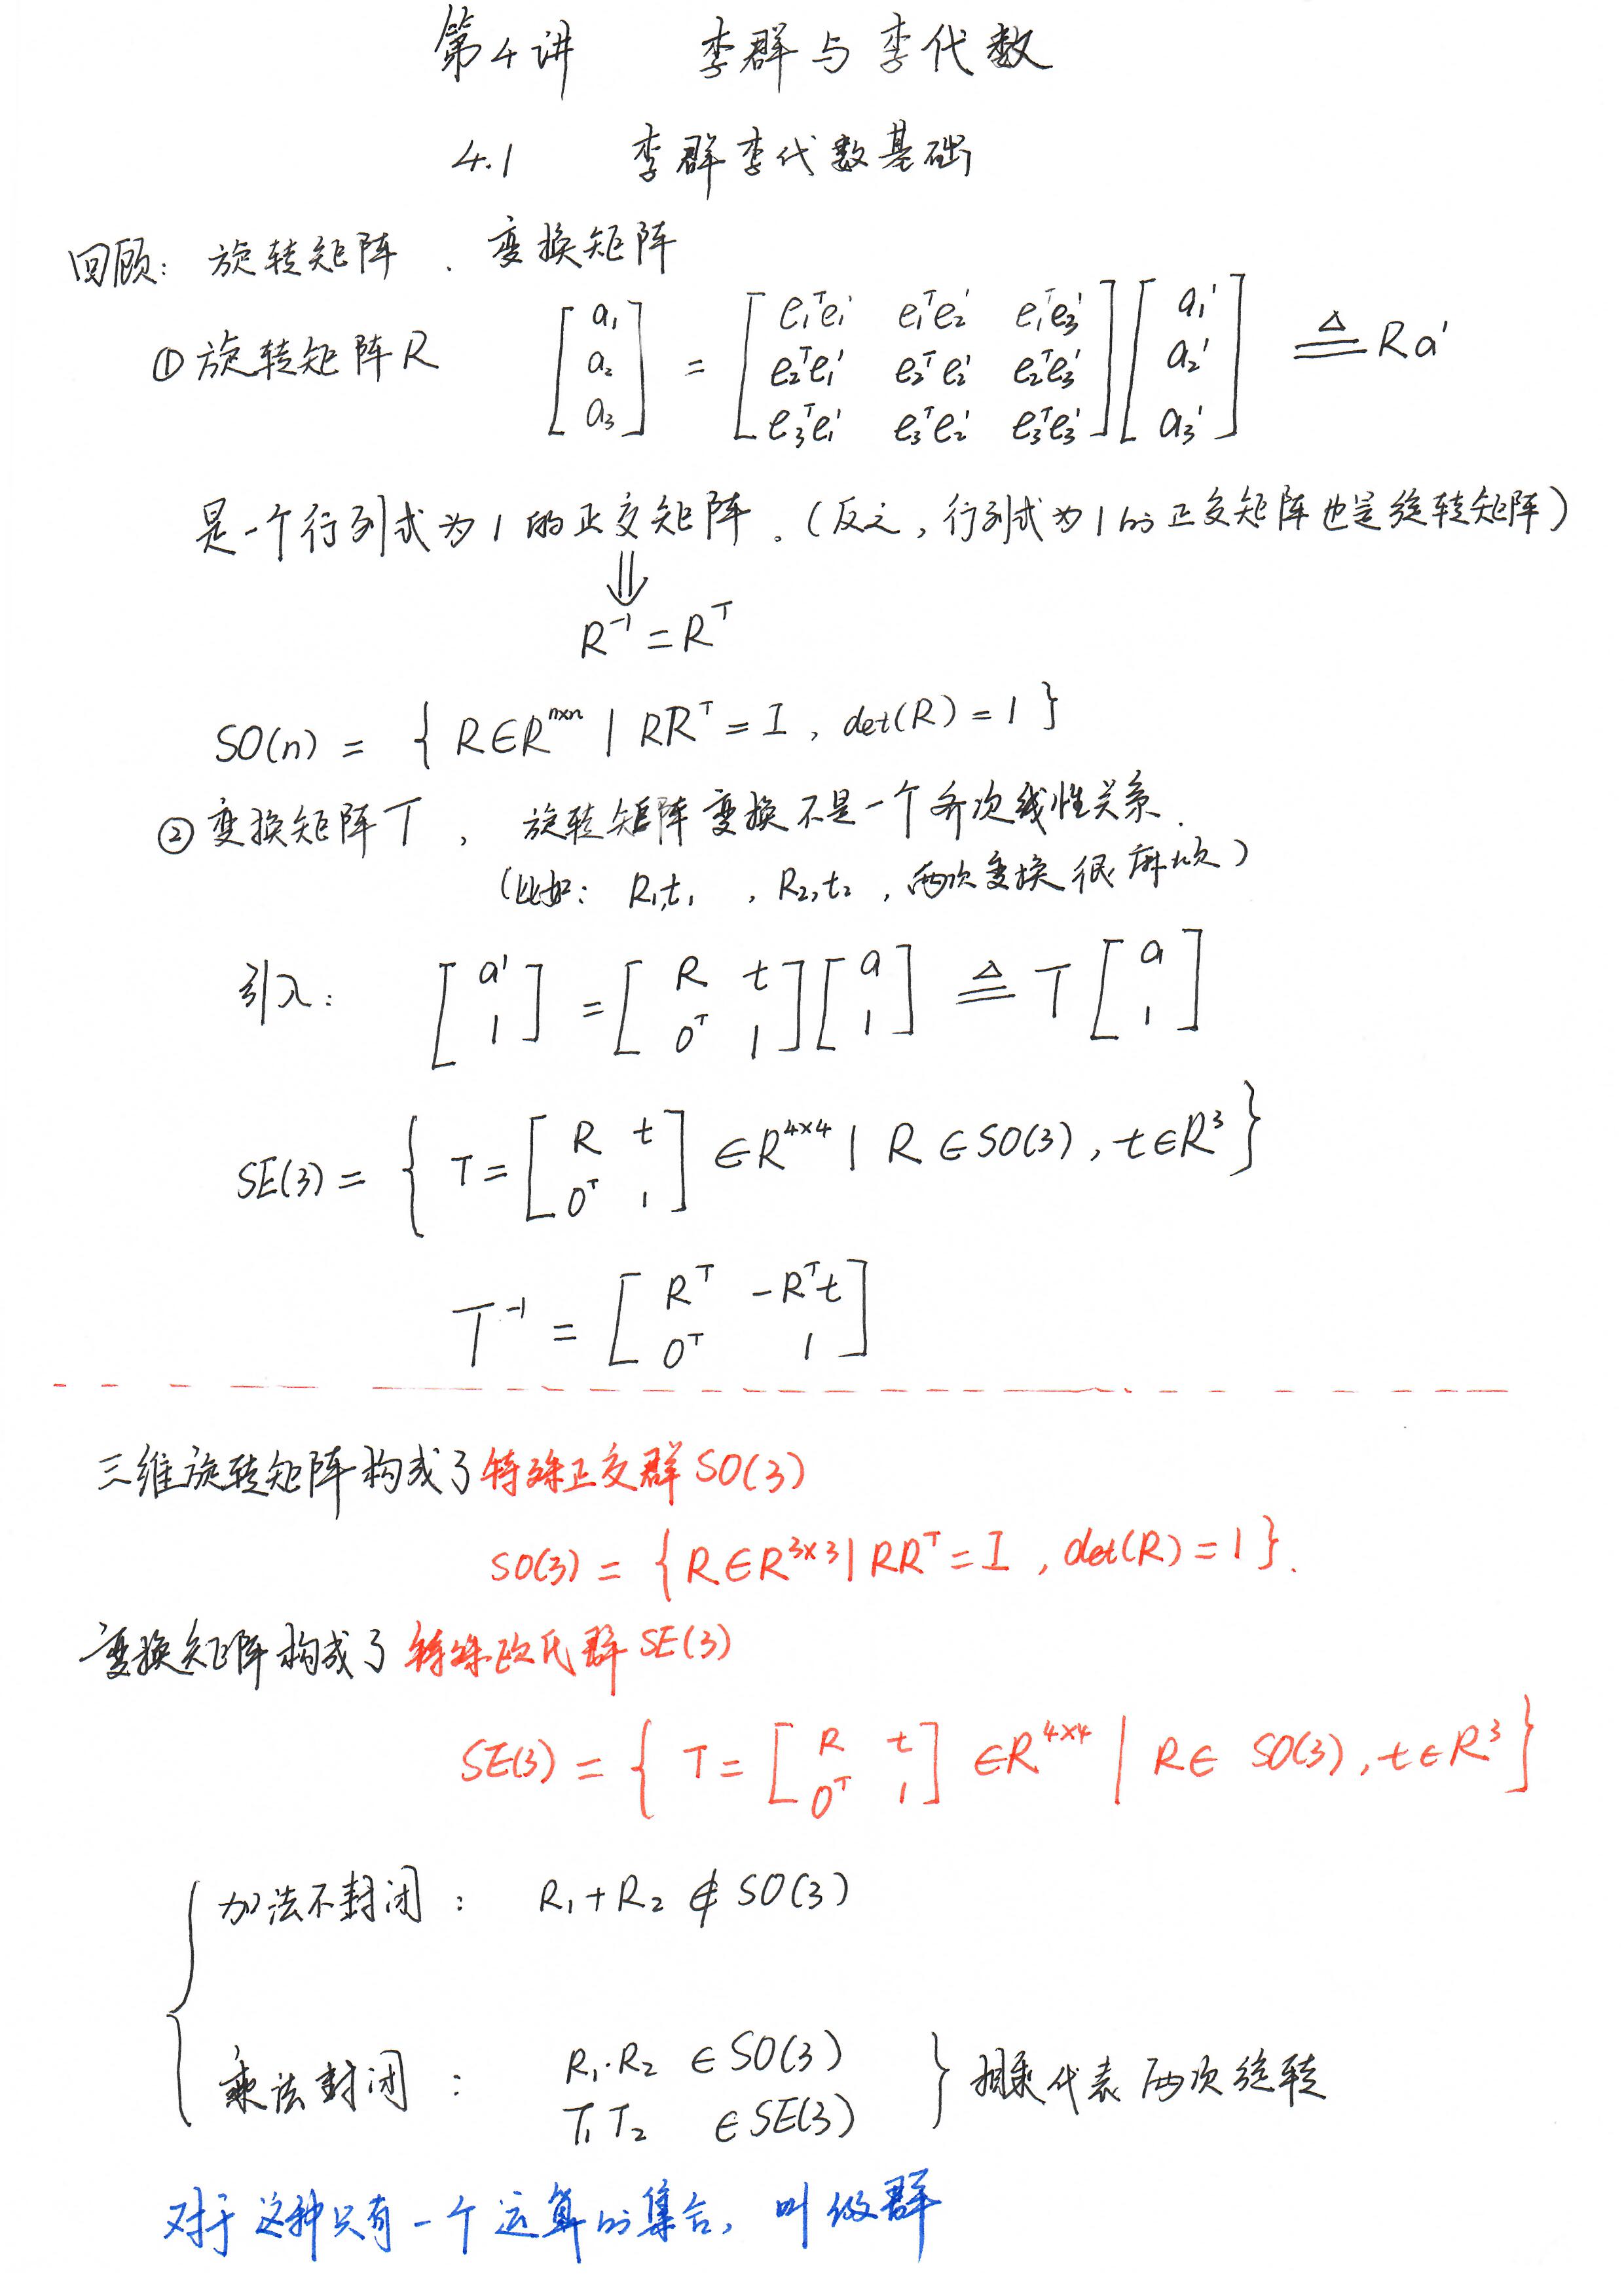 第4讲 李群与李代数
4.1 李群李代数基础
回顾: 旋转矩阵 、 变换矩阵
① 旋转矩阵R [a₁ a₂ a₃] = [e₁ᵀe₁' e₁ᵀe₂' e₁ᵀe₃' e₂ᵀe₁' e₂ᵀe₂' e₂ᵀe₃' e₃ᵀe₁' e₃ᵀe₂' e₃ᵀe₃'] [a₁' a₂' a₃'] ≜ Ra'
是一个行列式为1的正交矩阵。(反之, 行列式为1的正交矩阵也是旋转矩阵)
⇓
R⁻¹ = Rᵀ
SO(n) = { R∈Rⁿˣⁿ | RRᵀ = I, det(R) = 1 }
② 变换矩阵T , 旋转矩阵变换不是一个齐次线性关系.
(比如: R₁,t₁ , R₂,t₂ , 两次变换很麻烦)
引入: [a' 1] = [R t 0ᵀ 1] [a 1] ≜ T [a 1]
SE(3) = { T = [R t 0ᵀ 1] ∈R⁴ˣ⁴ | R∈SO(3), t∈R³ }
T⁻¹ = [Rᵀ -Rᵀt 0ᵀ 1]
三维旋转矩阵构成了特殊正交群SO(3)
SO(3) = { R∈R³ˣ³ | RRᵀ = I , det(R) = 1 }.
变换矩阵构成了特殊欧氏群SE(3)
SE(3) = { T = [R t 0ᵀ 1] ∈R⁴ˣ⁴ | R∈ SO(3), t∈R³ }
加法不封闭: R₁+R₂ ∉ SO(3)
乘法封闭: R₁·R₂ ∈SO(3)
T₁T₂ ∈SE(3) } 相乘代表两次旋转
对于这种只有一个运算的集合, 叫做群